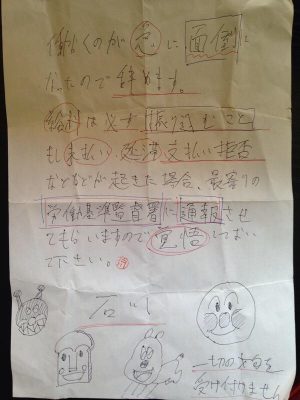 働くのが急に面倒に
なったので辞めます。
給料は必ず、振り込むこと
もし未払い、延滞、支払い拒否
などなどが起きた場合、最寄りの
労働基準監督署に通報させ
てもらいますので覚悟してい
て下さい。
石川
一切の文句を
受け付けません